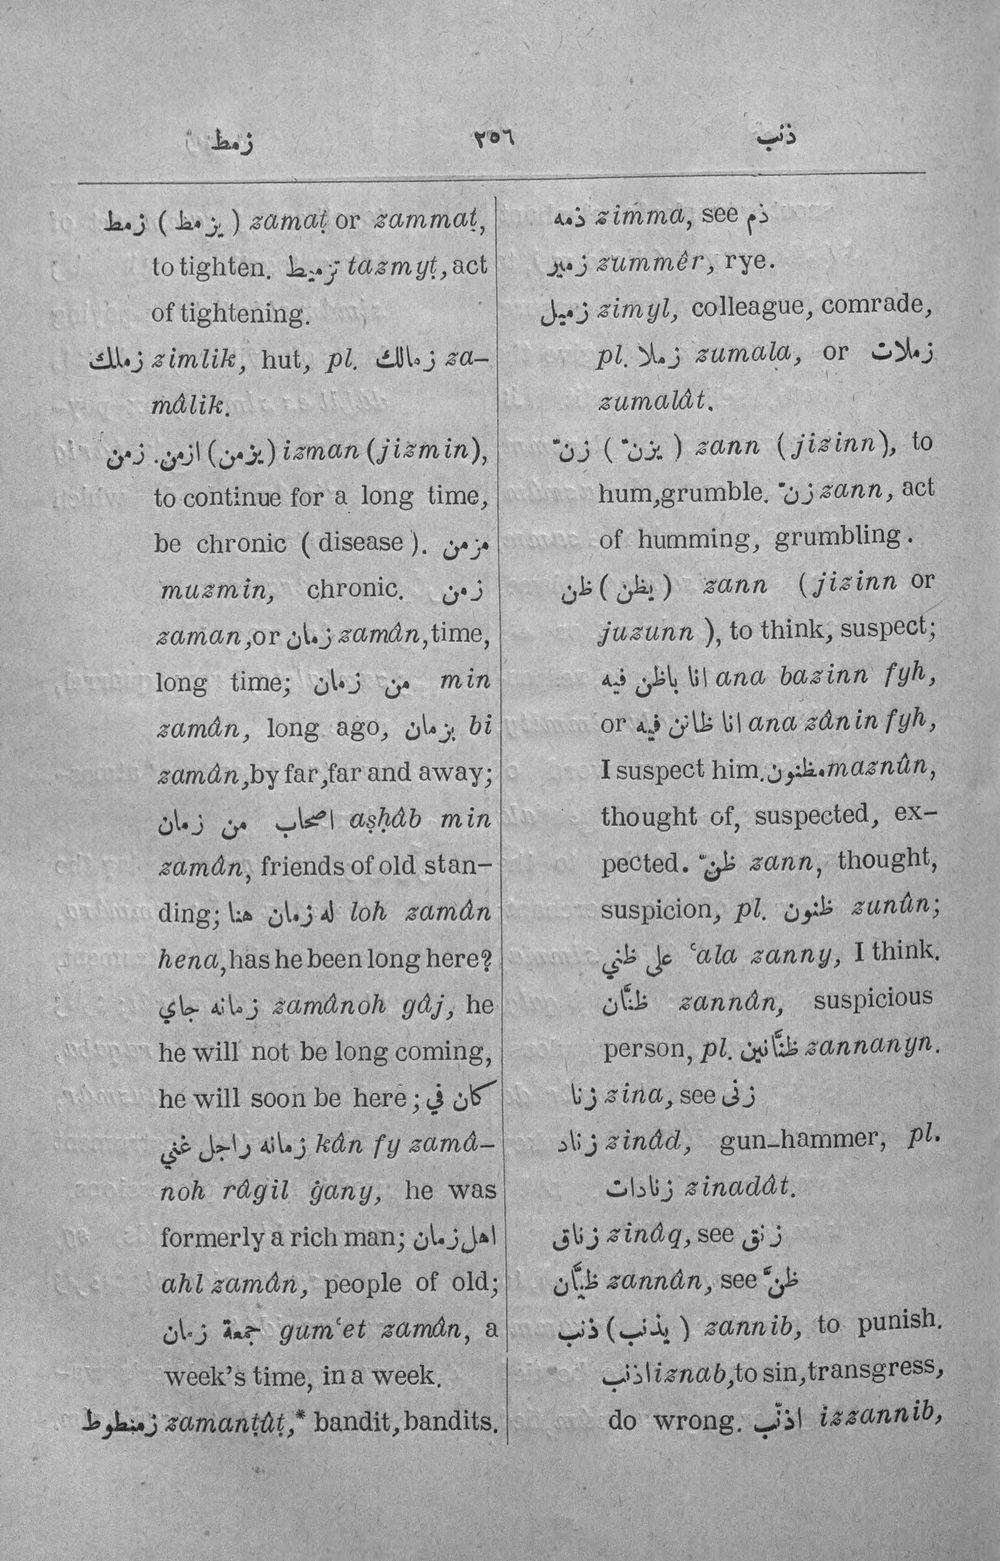 زمط ٢٥٦ ذنب
زمط (يزمط) zamaṭ or zammaṭ,
to tighten. تزميط tazmyṭ, act
of tightening.
زملك zimlik, hut, pl. زمالك za-
mâlik.
زمن .ازمن (يزمن) izman (jizmin),
to continue for a long time,
be chronic (disease). مزمن
muzmin, chronic. زمن
zaman, or زمان zamân, time,
long time; من زمان min
zamân, long ago, بزمان bi
zamân, by far, far and away;
اصحاب من زمان aṣḥâb min
zamân, friends of old stan-
ding; له زمان هنا loh zamân
hena, has he been long here?
زمانه جاي zamânoh gâj, he
he will not be long coming,
he will soon be here; كان في
زمانه راجل غني kân fy zamâ-
noh râgil ġany, he was
formerly a rich man; اهل زمان
ahl zamân, people of old;
جمعة زمان gumʿet zamân, a
week's time, in a week.
زمنطوط zamanṭûṭ,* bandit, bandits.
ذمه zimma, see ذم
زمير zummêr, rye.
زميل zimyl, colleague, comrade,
pl. زملا zumala, or زملات
zumalât.
زنّ (يزنّ) zann (jizinn), to
hum, grumble. زنّ zann, act
of humming, grumbling.
ظن (يظن) zann (jizinn or
juzunn), to think, suspect;
انا باظن فيه ana bazinn fyh,
or انا ظانن فيه ana zânin fyh,
I suspect him. مظنون maznûn,
thought of, suspected, ex-
pected. ظنّ zann, thought,
suspicion, pl. ظنون zunûn;
على ظني ʿala zanny, I think.
ظنَّان zannân, suspicious
person, pl. ظنَّانين zannanyn.
زنا zina, see زنى
زناد zinâd, gun-hammer, pl.
زنادات zinadât.
زناق zinâq, see زنق
ظنَّان zannân, see ظنّ
ذنب (يذنب) zannib, to punish.
اذنب iznab, to sin, transgress,
do wrong. اذنّب izzannib,